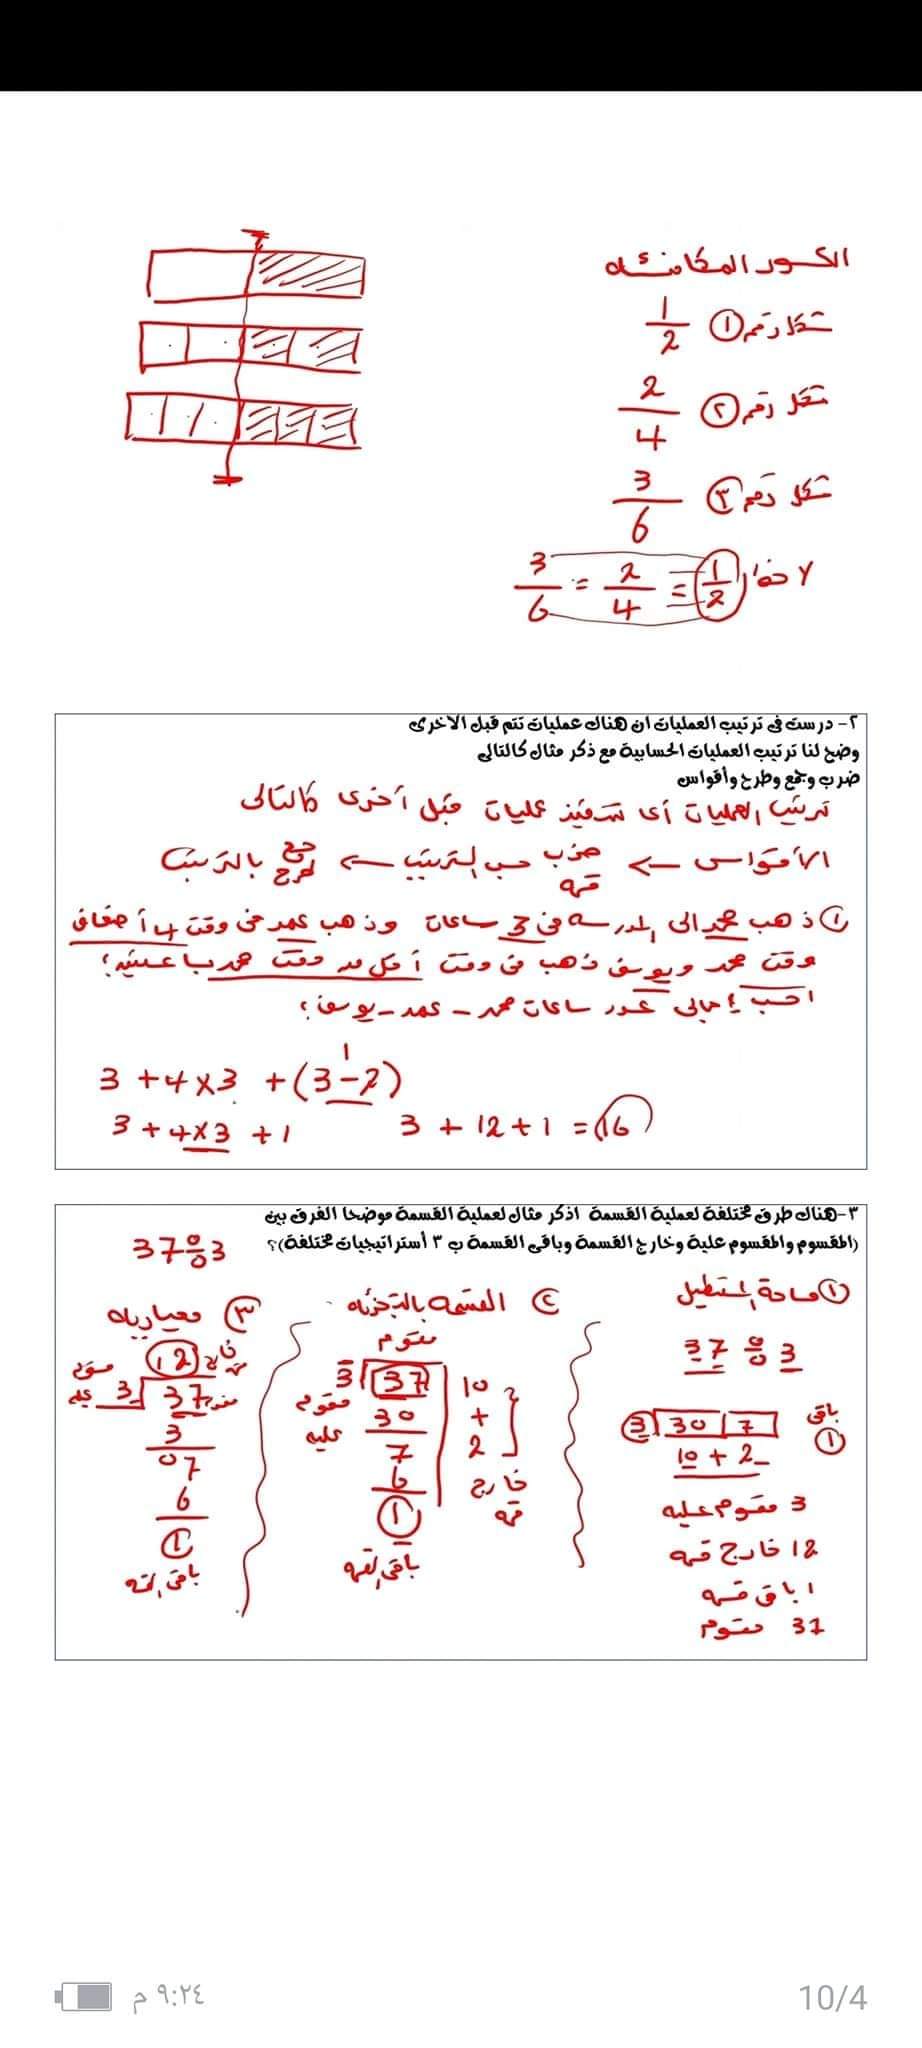 الكسور المتكافئه
شكل رقم ① 1/2
شكل رقم ② 2/4
شكل رقم ③ 3/6
لاحظ 1/2 = 2/4 = 3/6
٢- درست فى ترتيب العمليات ان هناك عمليات تتم قبل الاخرى
وضح لنا ترتيب العمليات الحسابية مع ذكر مثال كالتالى
ضرب وجمع وطرح وأقواس
ترتيب العمليات أى تنفيذ عمليات قبل أخرى كالتالى
الأقواس ← ضرب قسمه حسب الترتيب ← جمع طرح بالترتيب
① ذهب محمد الى المدرسه فى 3 ساعات وذهب عمر فى وقت 4 أضعاف
وقت محمد ويوسف ذهب فى وقت أقل من وقت محمد بساعتين؟
احسب إجمالى عدد ساعات محمد - عمر - يوسف؟
3 + 4 × 3 + (3 - 2)
1
3 + 4 × 3 + 1
3 + 12 + 1 = 16
٣-هناك طرق مختلفة لعملية القسمة اذكر مثال لعملية القسمة موضحا الفرق بين
(المقسوم والمقسوم علية وخارج القسمة وباقى القسمة ب ٣ أستراتيجيات مختلفة)؟
37 ÷ 3
① مساحة المستطيل
37 ÷ 3
3 30 7
باقى ①
10 + 2
3 مقسوم عليه
12 خارج قسمه
1 باقى قسمه
37 مقسوم
② القسمه بالتجزئه
مقسوم
3 37 10
مقسوم عليه
30 +
7 2
6 خارج قسمه
①
باقى القسمه
③ معياريه
خارج 12
مقسوم عليه 3 37 مقسوم
3
07
6
①
باقى القسمه
٩:٢٤ م
10/4